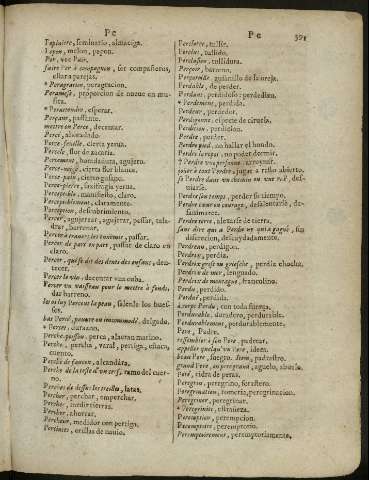 Pe
Pe
Papinière, seminario, almaciga.
Pepon, melon, pepon.
Par, vee Pair.
faire Pair à compagnon, ser compañeros,
estar a parejas.
* Peragration, peragracion.
, proporcion de nueue en mu-
sica.
* Peraetendre, esperar.
Perçant, passante.
mettre en Perce, decentar.
Percé, ahoradado.
Perce-feuille, cierta yerua.
Percelle, flor de azuzena.
Percement, horadadura, agujero.
Perce-neige, cierta flor blanca.
Perce-pain, cierto gusano.
Perce-pierre, saxifragia yerua.
Perceptible, manifiesto, claro.
Perceptiblement, claramente.
Perception, descubrimiento.
Percer, agujerear, agujerar, passar, tala-
drar, barrenar.
Percer à trauers, ou continuer, passar.
Percer de part en part, passar de claro en
claro.
Percer, qui se dit des dents des enfans, den-
tecer.
Percer le vin, decentar vna cuba.
Percer vn vaisseau pour le mettre à fonds,
dar barreno.
les os luy Percent la peau, salirle los hues-
sos.
bas Percé, pauure ou incommodé, delgado.
* Percer, ouranno.
Perche-poisson, perca, alacran marino.
Perche, percha, varal, pertiga, estaca,
cuento.
Perche de faucon, alcandára.
Perche de la teste d'vn cerf, ramo del cuer-
no.
Perches de dessus les treilles, latas.
Percher, perchar, emperchar.
Percher, medir tierras.
Percher, ahorcar.
Percheur, medidor con pertiga.
Perclores, orillas de nauio.
Perclorre, tullir.
Perclus, tullido.
Perclusion, tullidura.
Perçoir, barreno.
Percoreille, gusanillo de la oreja.
Perdable, de perder.
Perdant, perdidoso: perdedizo.
* Perdement, perdida.
Perdeur, perdedor.
Perdigonne, especie de ciruela.
Perdition, perdicion.
Perdre, perder.
Perdre pied, no hallar el hondo.
Perdre le repas, no poder dormir.
† Perdre vne personne, arroynar.
jouer à tout Perdre, jugar a resto abierto.
se Perdre dans vn chemin ou vne ruë, des-
uiarse.
Perdre son temps, perder su tiempo.
Perdre cœur ou courage, desalentarse, de-
sanimarse.
Perdre terre, alexarse de tierra,
sans dire qui a Perdu ny qui a gagné, sin
discrecion, descuydadamente.
Perdreau, perdigon.
Perdrix, perdiz.
Perdrix grise ou griesche, perdiz chocha,
Perdrix de mer, lenguado.
Perdrix de montagne, francolino.
Perdu, perdido.
Perduë, perdida.
à corps Perdu, con toda fuerça.
Perdurable, duradero, perdurable.
Perdurablement, perdurablemente.
Pere, Padre.
ressembler à son Pere, padrear.
appeller quelqu'vn Pere, idem.
beau Pere, suegro. Item, padrastro.
grand Pere, ou peregrand, aguelo, abuelo.
Peré, sidra de peras.
Peregrin, peregrino, forastero.
Peregrination, romeria, peregrinacion.
Peregriner, peregrinar.
* Peregrinité, estrañeza.
Peremption, perempcion.
Peremptoire, peremptorio.
Peremptoirement, peremptoriamente.